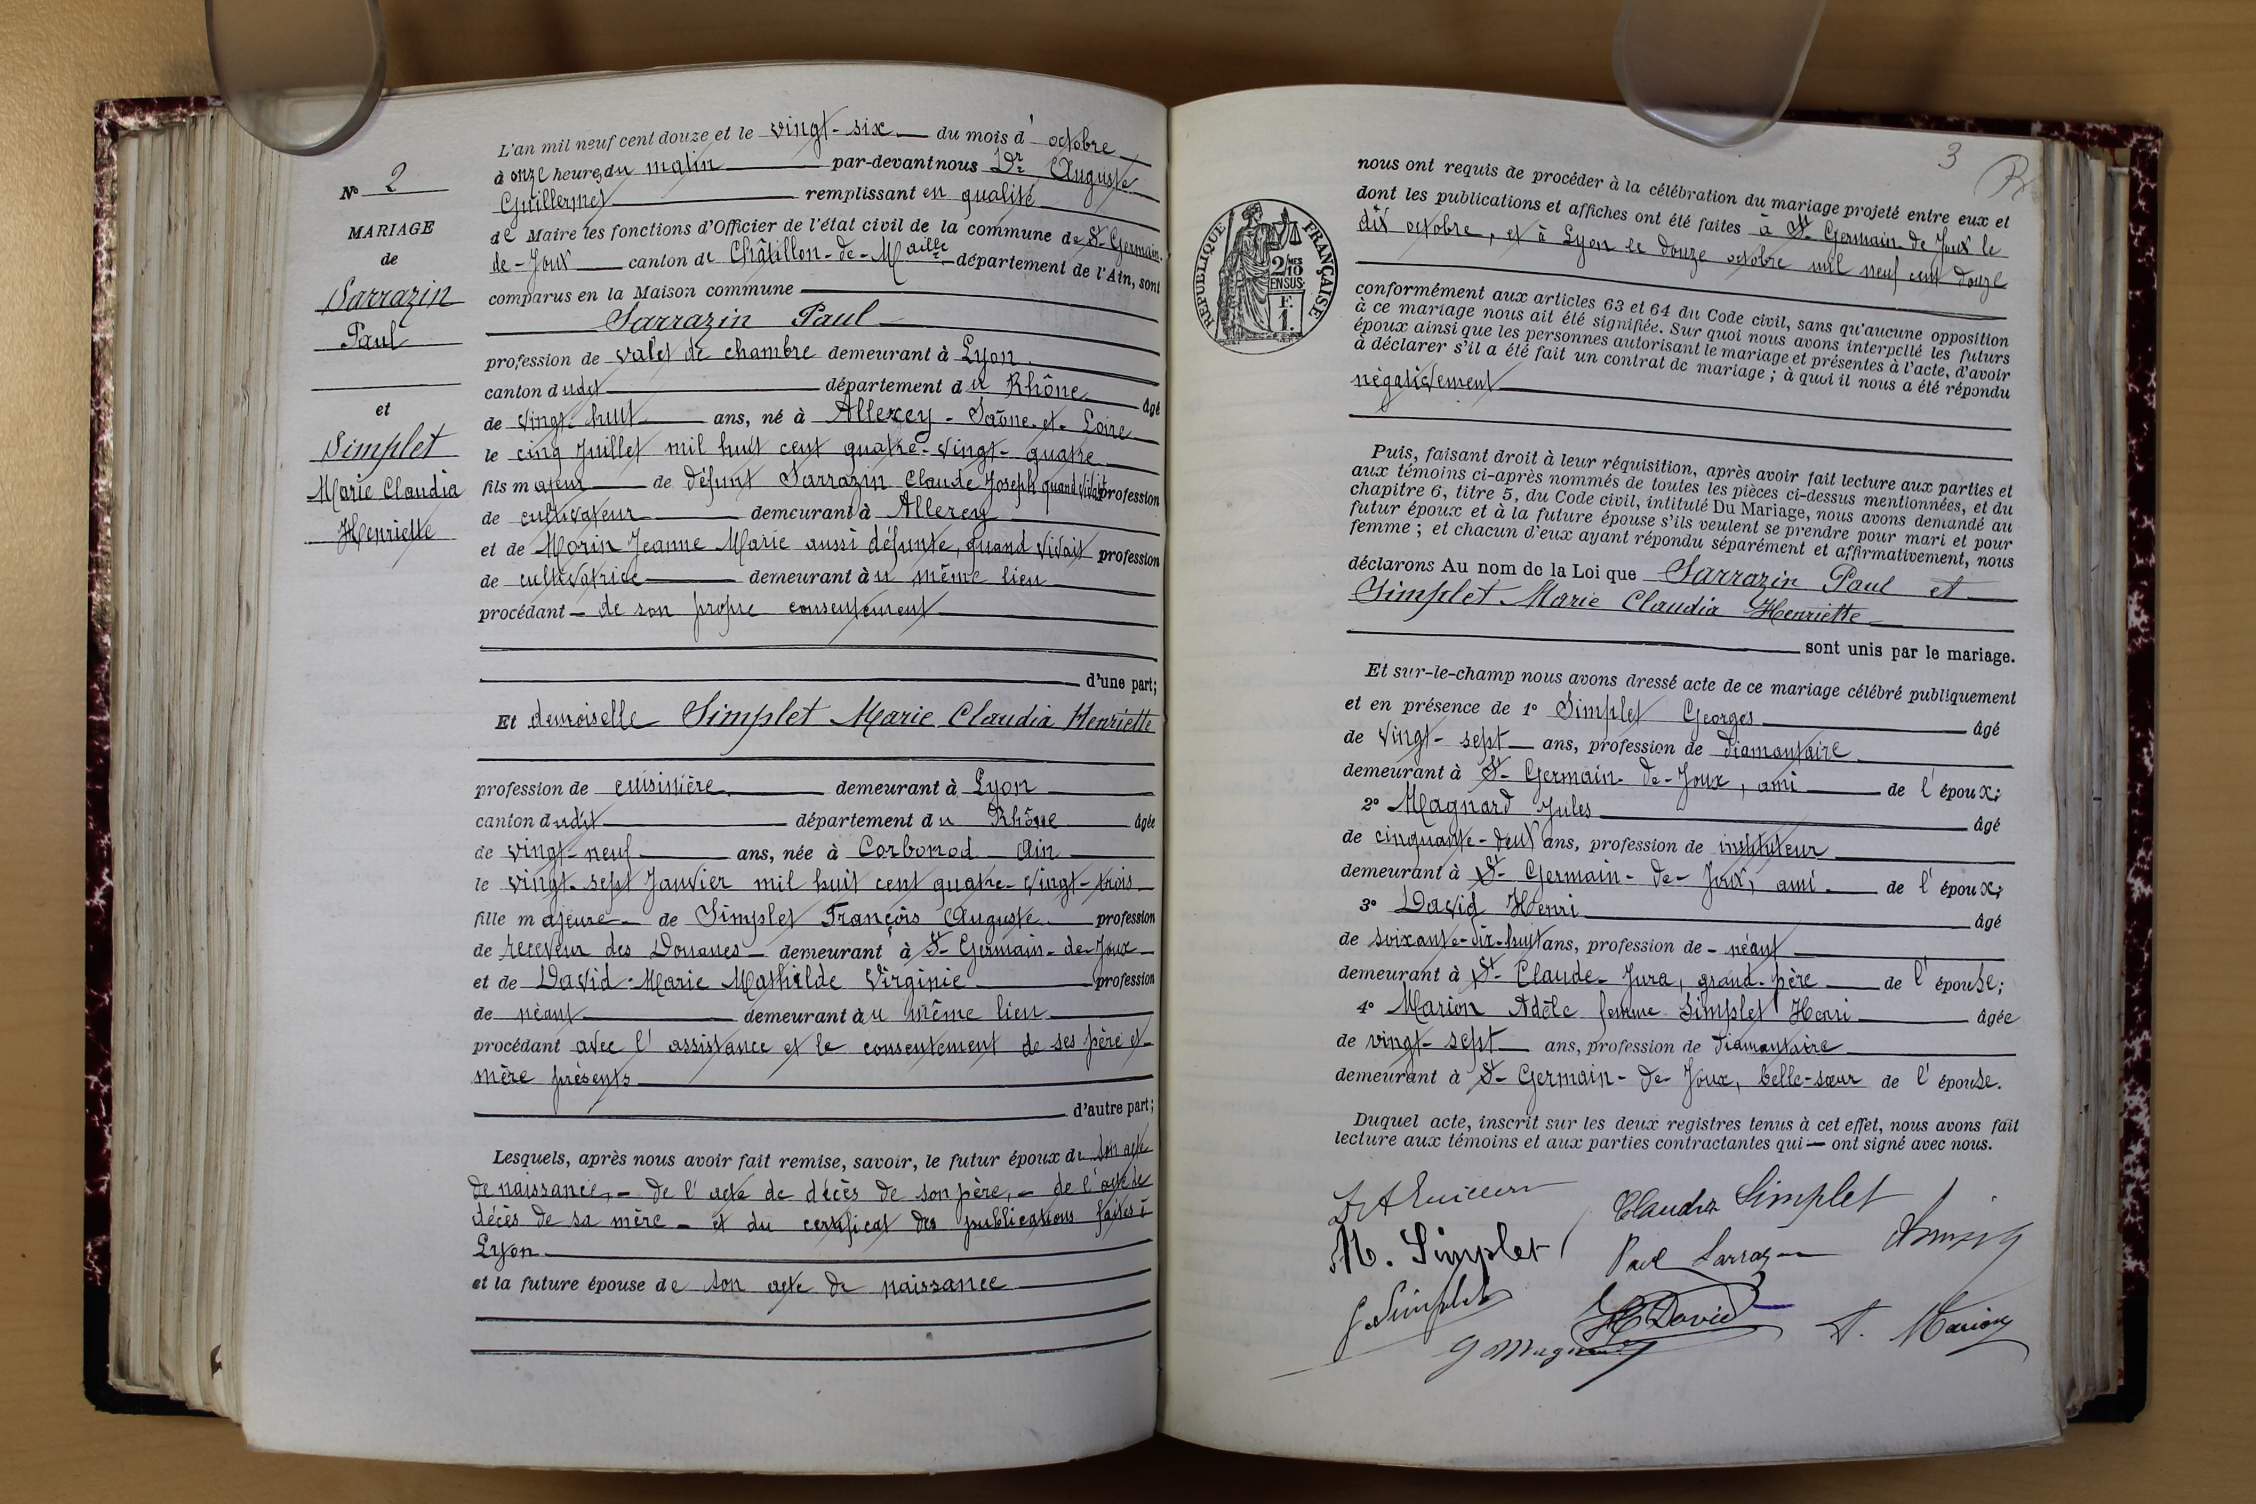 N° 2
MARIAGE
de
Sarrazin
Paul
et
Simplet
Marie Claudia
Henriette
L'an mil neuf cent douze et le vingt-six du mois d'octobre
à onze heures du matin par-devant nous Dr Auguste
Guillermet remplissant en qualité
de Maire les fonctions d'Officier de l'état civil de la commune de St-Germain-
de-Joux canton de Châtillon-de-Maille département de l'Ain, sont
comparus en la Maison commune
Sarrazin Paul
profession de valet de chambre demeurant à Lyon
canton dudit département du Rhône âgé
de vingt-huit ans, né à Allerey - Saône-et-Loire
le cinq Juillet mil huit cent quatre-vingt-quatre
fils majeur de défunt Sarrazin Claude Joseph quand vivait profession
de cultivateur demeurant à Allerey
et de Morin Jeanne Marie aussi défunte, quand vivait profession
de cultivatrice demeurant au même lieu
procédant de son propre consentement
d'une part;
Et demoiselle Simplet Marie Claudia Henriette
profession de cuisinière demeurant à Lyon
canton dudit département du Rhône âgée
de vingt-neuf ans, née à Corbonod Ain
le vingt-sept Janvier mil huit cent quatre-vingt-trois
fille majeure de Simplet François Auguste profession
de receveur des Douanes demeurant à St-Germain-de-Joux
et de David Marie Mathilde Virginie profession
de néant demeurant au même lieu
procédant avec l'assistance et le consentement de ses père et
mère présents
d'autre part;
Lesquels, après nous avoir fait remise, savoir, le futur époux de son acte
de naissance, - de l'acte de décès de son père, - de l'acte de
décès de sa mère - et du certificat des publications faites à
Lyon
et la future épouse de son acte de naissance
3
RÉPUBLIQUE FRANÇAISE
2/10 MES
EN SUS
F.
1.
nous ont requis de procéder à la célébration du mariage projeté entre eux et
dont les publications et affiches ont été faites à St Germain-de-Joux le
dix octobre, et à Lyon le douze octobre mil neuf cent douze
conformément aux articles 63 et 64 du Code civil, sans qu'aucune opposition
à ce mariage nous ait été signifiée. Sur quoi nous avons interpellé les futurs
époux ainsi que les personnes autorisant le mariage et présentes à l'acte, d'avoir
à déclarer s'il a été fait un contrat de mariage; à quoi il nous a été répondu
négativement
Puis, faisant droit à leur réquisition, après avoir fait lecture aux parties et
aux témoins ci-après nommés de toutes les pièces ci-dessus mentionnées, et du
chapitre 6, titre 5, du Code civil, intitulé Du Mariage, nous avons demandé au
futur époux et à la future épouse s'ils veulent se prendre pour mari et pour
femme; et chacun d'eux ayant répondu séparément et affirmativement, nous
déclarons Au nom de la Loi que Sarrazin Paul et
Simplet Marie Claudia Henriette
sont unis par le mariage.
Et sur-le-champ nous avons dressé acte de ce mariage célébré publiquement
et en présence de 1° Simplet Georges âgé
de vingt-sept ans, profession de diamantaire
demeurant à St-Germain-de-Joux, ami de l'époux;
2° Magnard Jules âgé
de cinquante-deux ans, profession de instituteur
demeurant à St-Germain-de-Joux, ami de l'époux;
3° David Henri âgé
de soixante-dix-huit ans, profession de - néant
demeurant à St-Claude-Jura, grand-père de l'épouse;
4° Marion Adèle femme Simplet Henri âgée
de vingt-sept ans, profession de diamantaire
demeurant à St-Germain-de-Joux, belle-sœur de l'épouse.
Duquel acte, inscrit sur les deux registres tenus à cet effet, nous avons fait
lecture aux témoins et aux parties contractantes qui ont signé avec nous.
Claudia Simplet
M. Simplet
Paul Sarrazin
G. Simplet
H David
A. Marion